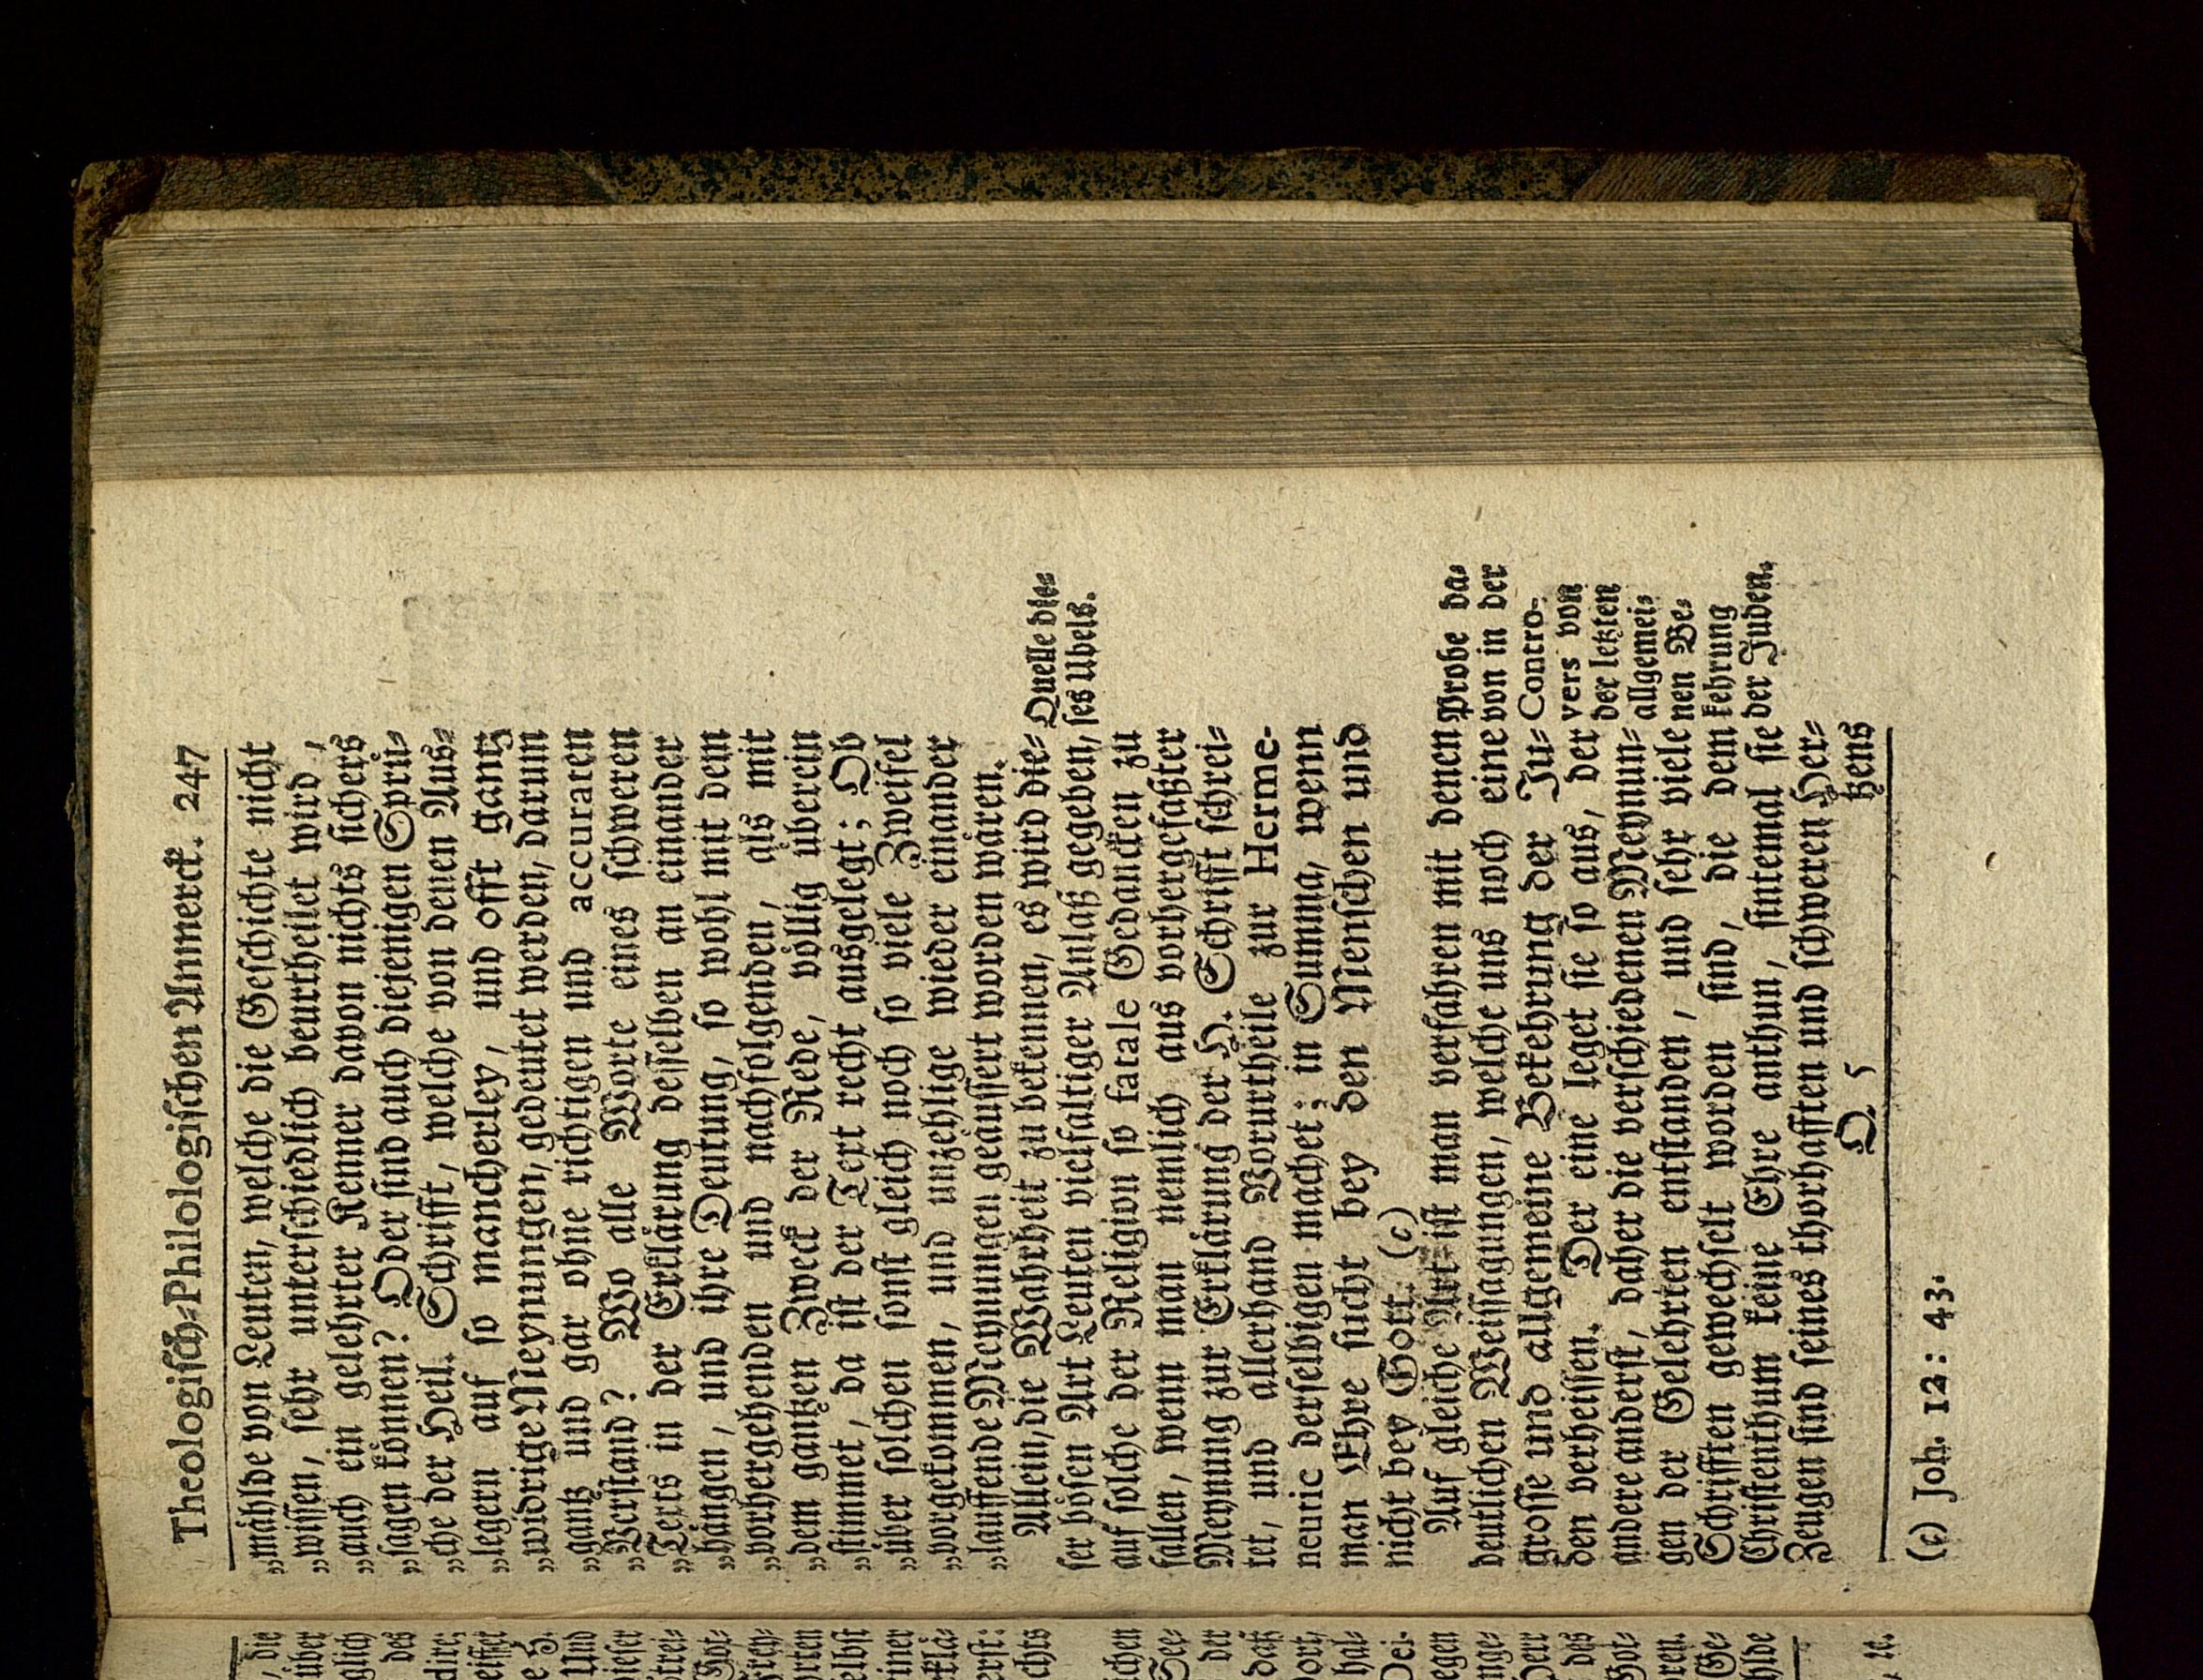 Theologisch=Philologischen Anmerck. 247
„mählde von Leuten, welche die Geschichte nicht
„wissen, sehr unterschiedlich beurtheilet wird,
„auch ein gelehrter Kenner davon nichts sichers
„sagen können? Oder sind auch diejenigen Sprü=
„che der Heil. Schrifft, welche von denen Aus=
„legern auf so mancherley, und offt gantz
„widrige Meynungen, gedeutet werden, darum
„gantz und gar ohne richtigen und accuraten
„Verstand? Wo alle Worte eines schweren
„Texts in der Erklärung desselben an einander
„hängen, und ihre Deutung, so wohl mit dem
„vorhergehenden und nachfolgenden, als mit
„dem gantzen Zweck der Rede, völlig überein
„stimmet, da ist der Text recht ausgelegt; Ob
„über solchen sonst gleich noch so viele Zweifel
„vorgekommen, und unzehlige wieder einander
„lauffende Meynungen geäussert worden wären.
Allein, die Wahrheit zu bekennen, es wird die=
ser bösen Art Leuten vielfaltiger Anlaß gegeben,
auf solche der Religion so fatale Gedancken zu
fallen, wenn man nemlich aus vorhergefaßter
Meynung zur Erklärung der H. Schrifft schrei=
tet, und allerhand Vorurtheile zur Herme-
neutic derselbigen machet; in Summa, wenn
man Ehre sucht bey den Menschen und
nicht bey Gott. (c)
Quelle die=
ses Ubels.
Auf gleiche Art ist man verfahren mit denen
deutlichen Weissagungen, welche uns noch eine
grosse und allgemeine Bekehrung der Jü=
den verheissen. Der eine leget sie so aus, der
andere anderst, daher die verschiedenen Meynun=
gen der Gelehrten entstanden, und sehr viele
Schrifften gewechselt worden sind, die dem
Christenthum keine Ehre anthun, sintemal sie
Zeugen sind seines thorhafften und schweren Her=
Probe da=
von in der
Contro-
vers von
der letzten
allgemei=
nen Be=
kehrung
der Juden.
Q 5 tzens
(c) Joh. 12: 43.
, die
über
glich
des
dire;
eisset
e H.
Und
dieser
strei=
Got=
orten
elbst
iner
erklä=
erst:
chts
chen
See=
der
daß
ort,
hal=
Dei-
egen
nge=
Herr
des
Got=
ren.
Ge=
hlde
, ic.